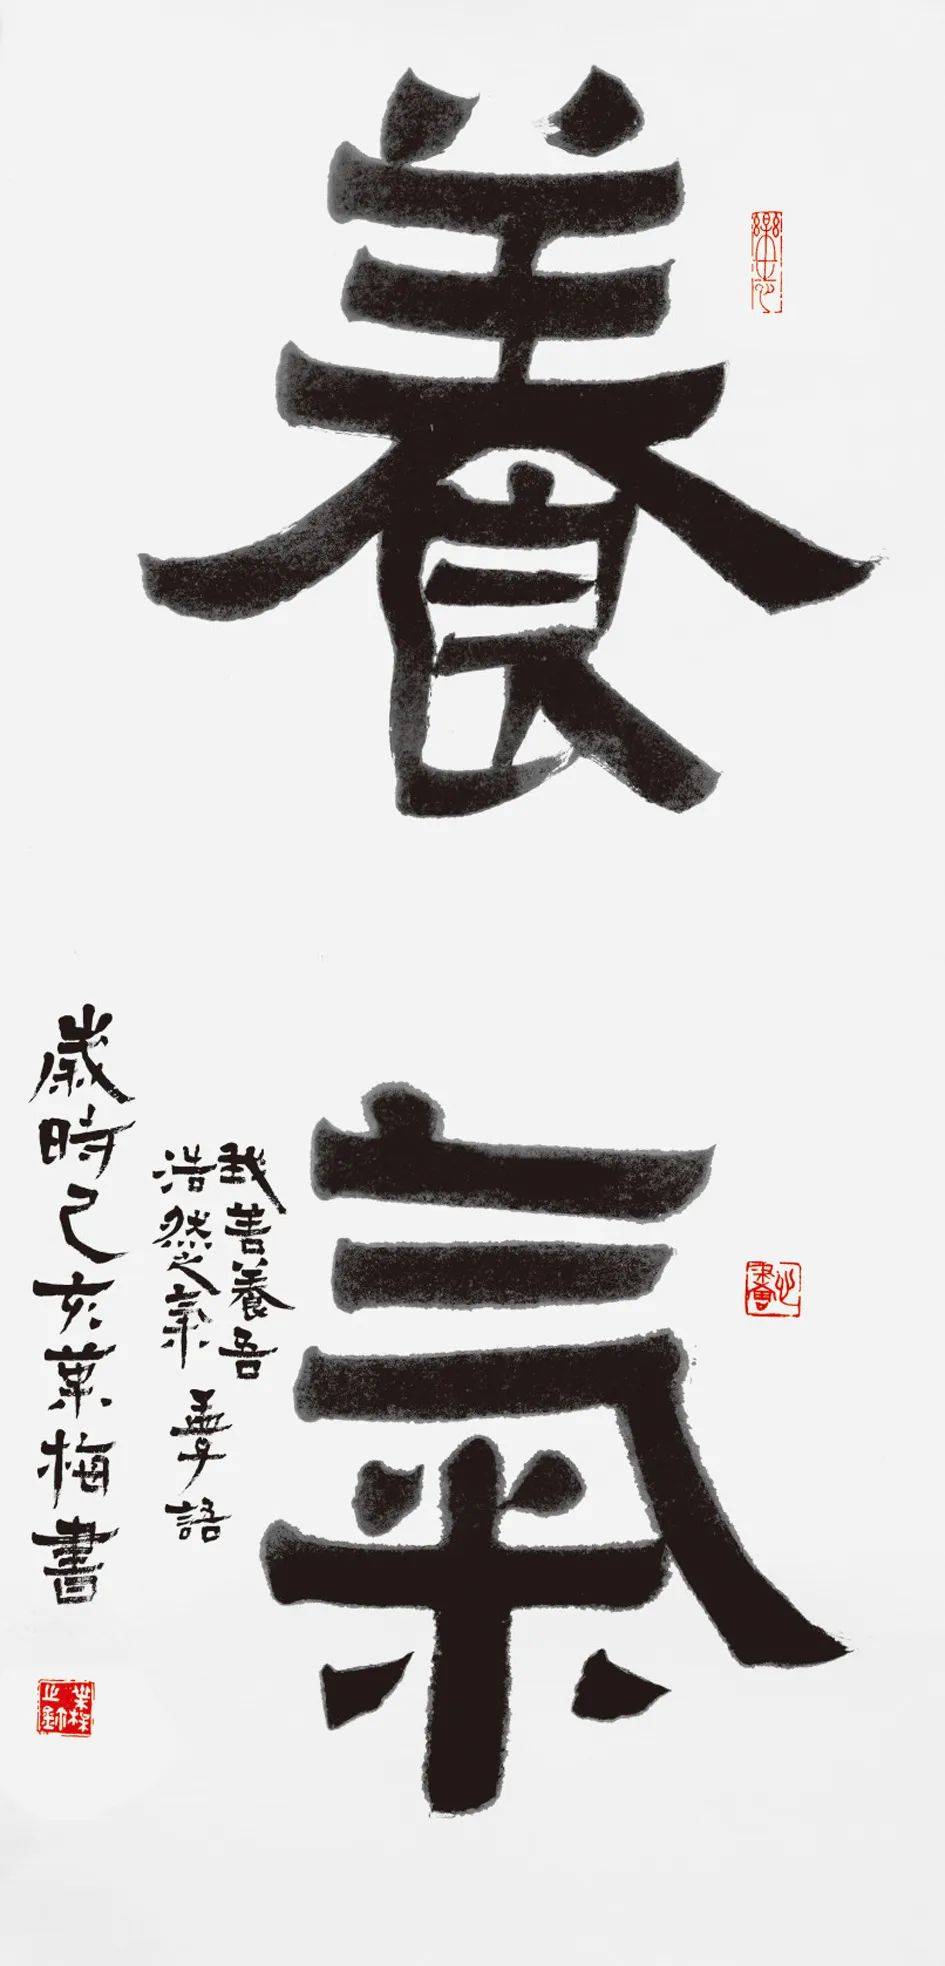 養氣
我善養吾
浩然之氣 孟子語
歲時己亥葉梅書